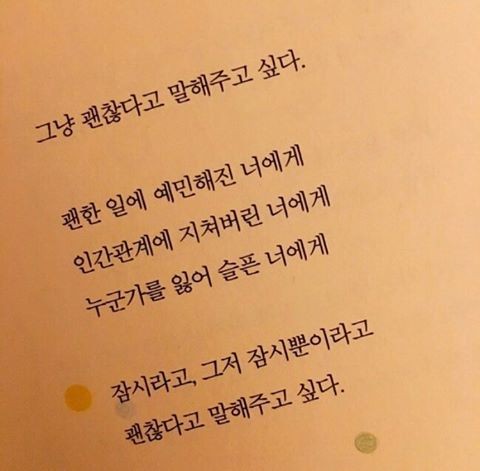 그냥 괜찮다고 말해주고 싶다.
괜한 일에 예민해진 너에게
인간관계에 지쳐버린 너에게
누군가를 잃어 슬픈 너에게
잠시라고, 그저 잠시뿐이라고
괜찮다고 말해주고 싶다.